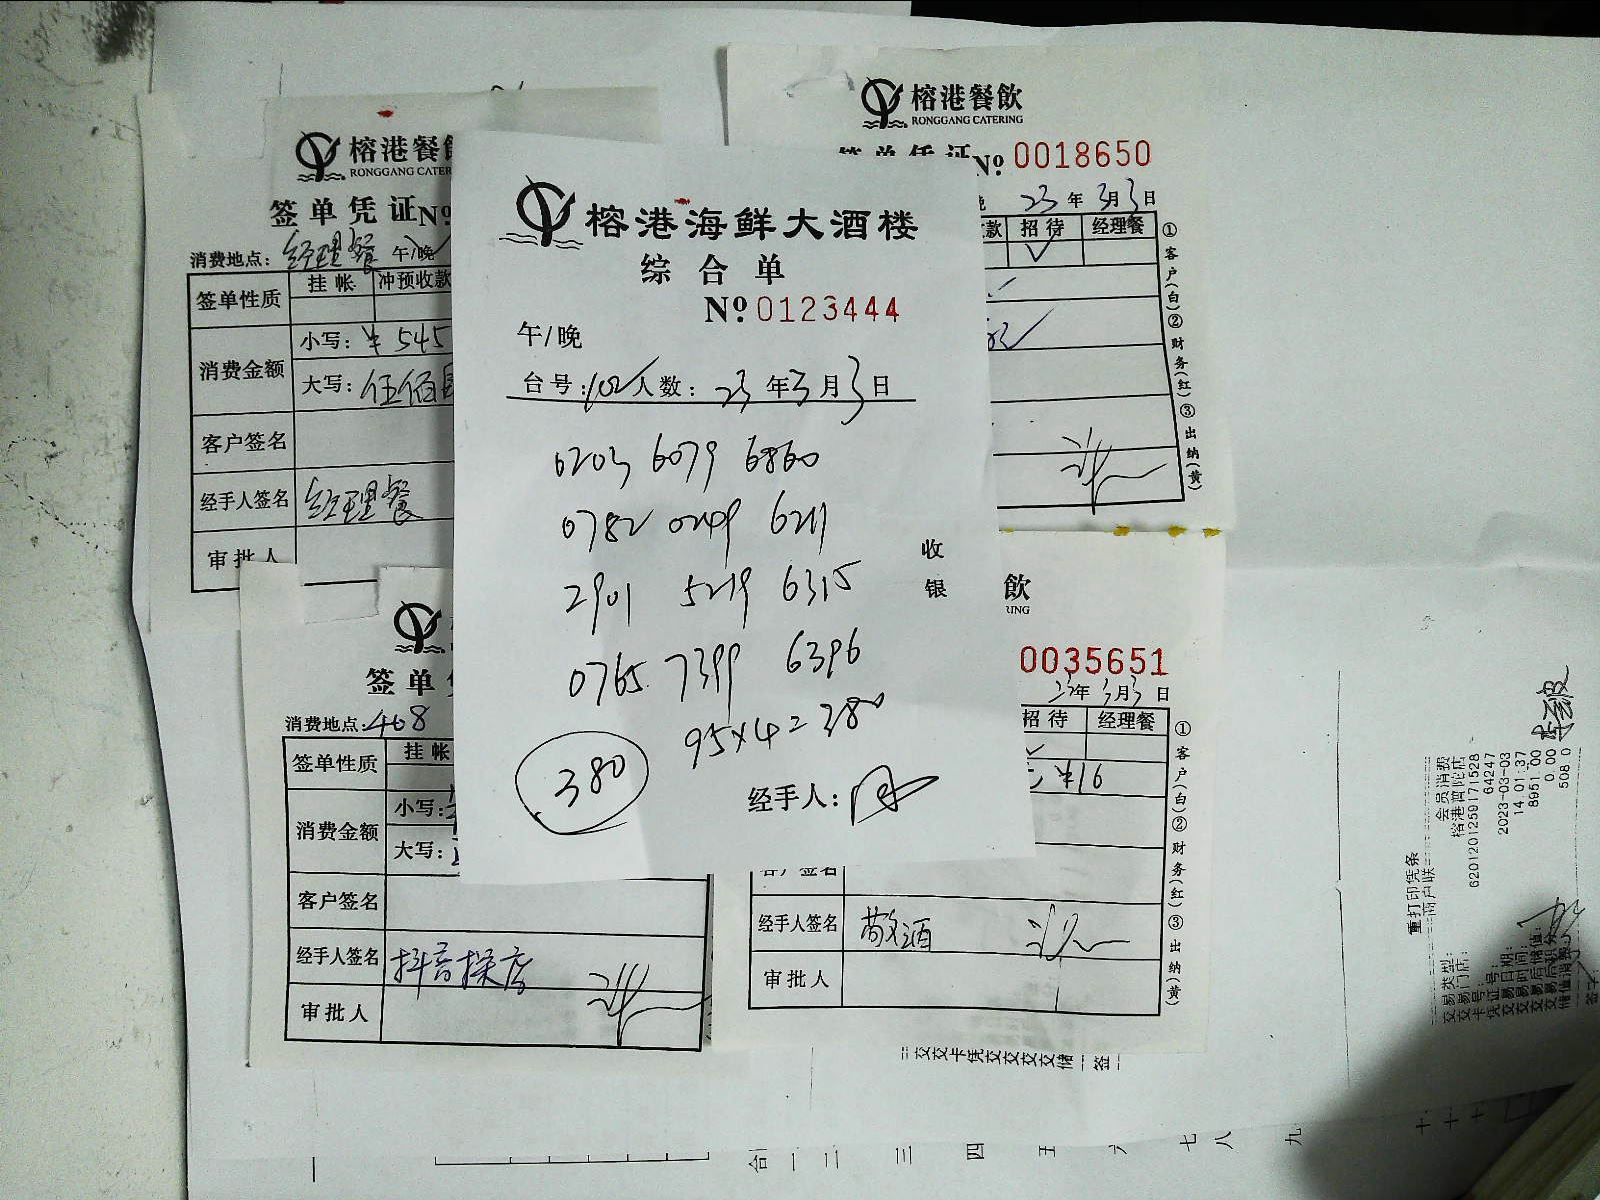 榕港餐飲
RONGGANG CATERING
№ 0018650
23年3月3日
款 招待 经理餐
①客户(白)②财务(红)③出纳(黄)
榕港餐
RONGGANG CATER
签单凭证№
消费地点：经理餐 午/晚
签单性质 挂帐 冲预收款
消费金额 小写：¥545
大写：伍佰
客户签名
经手人签名 经理餐
审批人
榕港海鲜大酒楼
综合单
№ 0123444
午/晚
台号：102 人数： 23年3月3日
0203 6079 6860
0782 0249 6211
2901 5219 6315
0765 7399 6396
95×4=380
380
经手人：
收银
签单
消费地点：408
签单性质 挂帐
消费金额 小写：
大写：
客户签名
经手人签名 抖音探店
审批人
飲
0035651
23年3月3日
招待 经理餐
¥16
①客户(白)②财务(红)③出纳(黄)
经手人签名 敬酒
审批人
重打印凭条
商户联
交易类型： 会员消费
交易门店： 榕港普陀店
卡号： 6201201259171528
凭证号： 64247
交易日期： 2023-03-03
交易时间： 14:01:37
交易后储值： 8951.00
交易后积分： 0.00
储值消费： 508.0
签字：
合 一 二 三 四 五 六 七 八 九 十